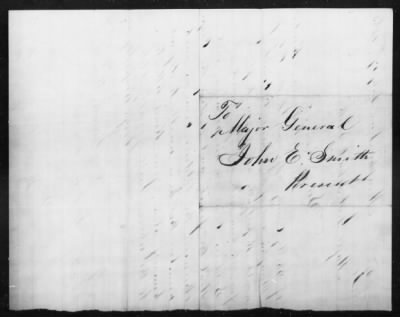 To
Major General
John E. Smith
Present